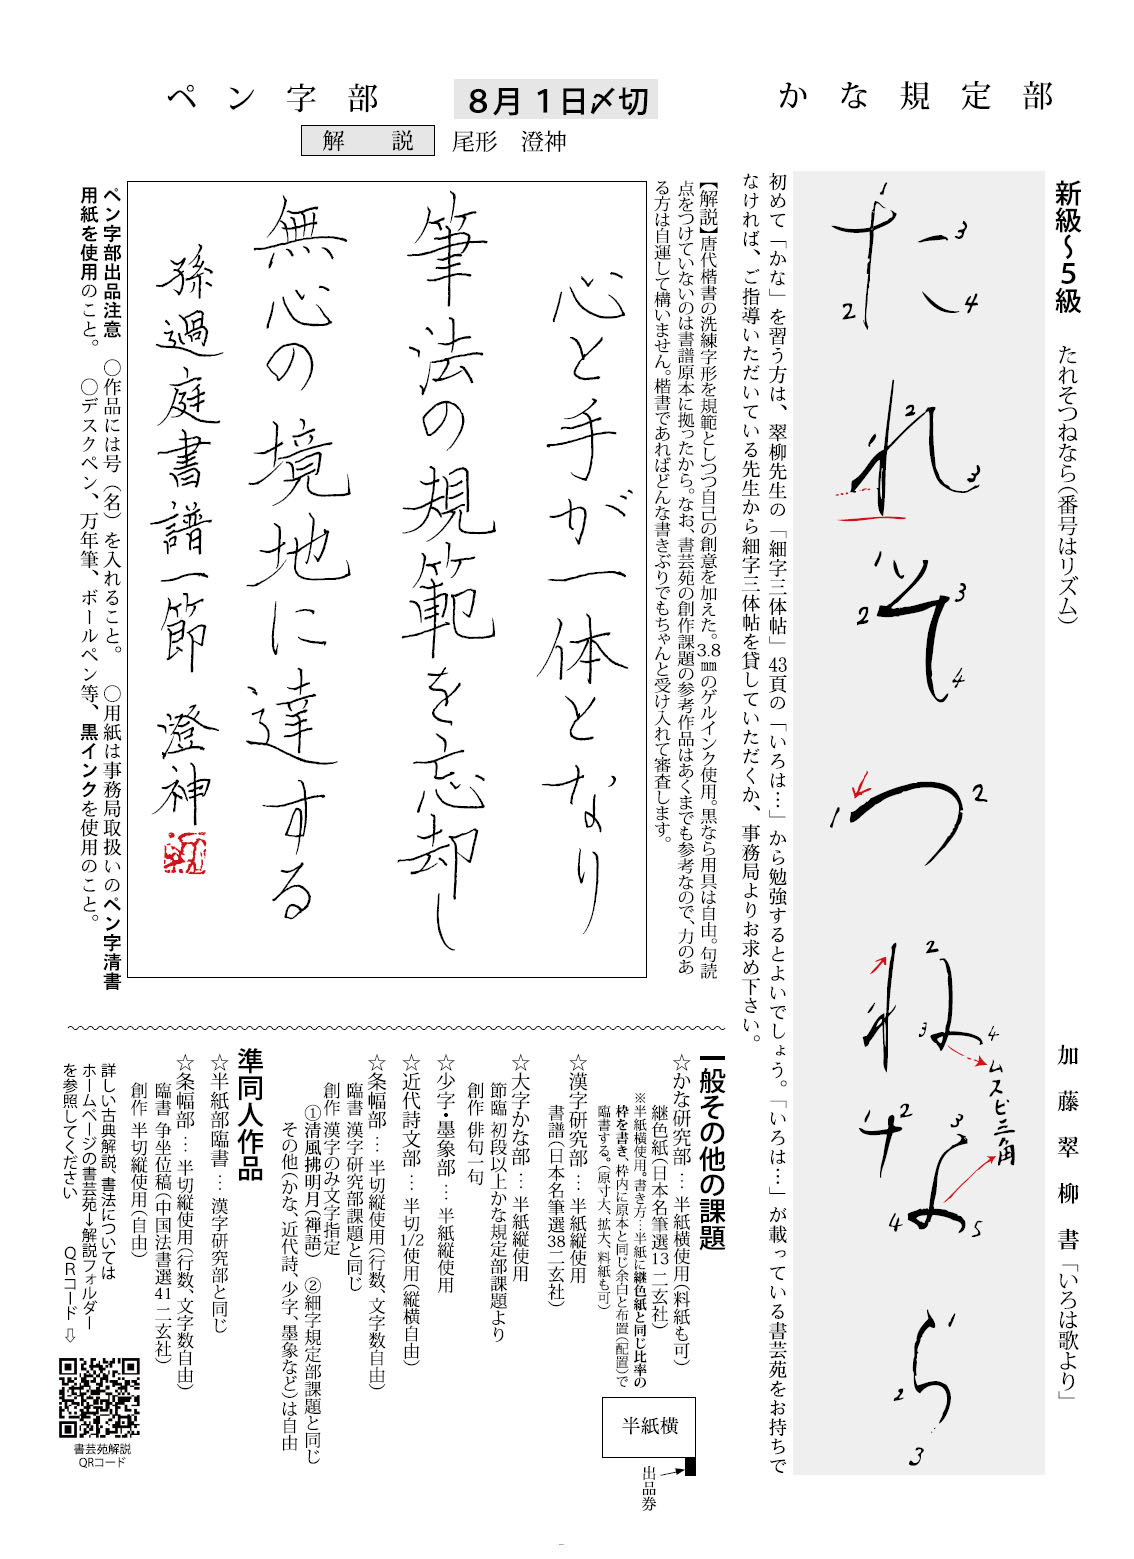 かな規定部
8月1日〆切
ペン字部
解説 尾形 澄神
新級～5級 たれそつねなら(番号はリズム)
加藤翠柳書「いろは歌より」
1
た
2
3
4
れ
2
3
1
そ
2
3
4
つ
1
2
ね
2
3
4
ムスビ三角
な
2
3
4
5
ら
2
3
初めて「かな」を習う方は、翠柳先生の「細字三体帖」43頁の「いろは…」から勉強するとよいでしょう。「いろは…」が載っている書芸苑をお持ちで
なければ、ご指導いただいている先生から細字三体帖を貸していただくか、事務局よりお求め下さい。
【解説】唐代楷書の洗練字形を規範としつつ自己の創意を加えた。3.8㎜のゲルインク使用。黒なら用具は自由。句読
点をつけていないのは書譜原本に拠ったから。なお、書芸苑の創作課題の参考作品はあくまでも参考なので、力のあ
る方は自運して構いません。楷書であればどんな書きぶりでもちゃんと受け入れて審査します。
心と手が一体となり
筆法の規範を忘却し
無心の境地に達する
孫過庭書譜一節 澄神
ペン字部出品注意 〇作品には号(名)を入れること。 〇用紙は事務局取扱いのペン字清書
用紙を使用のこと。 〇デスクペン、万年筆、ボールペン等、黒インクを使用のこと。
一般その他の課題
☆かな研究部 … 半紙横使用(料紙も可)
継色紙(日本名筆選13 二玄社)
※半紙横使用。書き方…半紙に継色紙と同じ比率の
枠を書き、枠内に原本と同じ余白と布置(配置)で
臨書する。(原寸大、拡大、料紙も可)
半紙横
出品券
☆漢字研究部 … 半紙縦使用
書譜(日本名筆選38 二玄社)
☆大字かな部 … 半紙縦使用
節臨 初段以上かな規定部課題より
創作 俳句一句
☆少字・墨象部 … 半紙縦使用
☆近代詩文部 … 半切1/2使用(縦横自由)
☆条幅部 … 半切縦使用(行数、文字数自由)
臨書 漢字研究部課題と同じ
創作 漢字のみ文字指定
①清風拂明月(禅語) ②細字規定部課題と同じ
その他(かな、近代詩、少字、墨象など)は自由
準同人作品
☆半紙部臨書 … 漢字研究部と同じ
☆条幅部 … 半切縦使用(行数、文字数自由)
臨書 争坐位稿(中国法書選41 二玄社)
創作 半切縦使用(自由)
詳しい古典解説、書法については
ホームページの書芸苑→解説フォルダー
を参照してください QRコード ⇨
書芸苑解説
QRコード